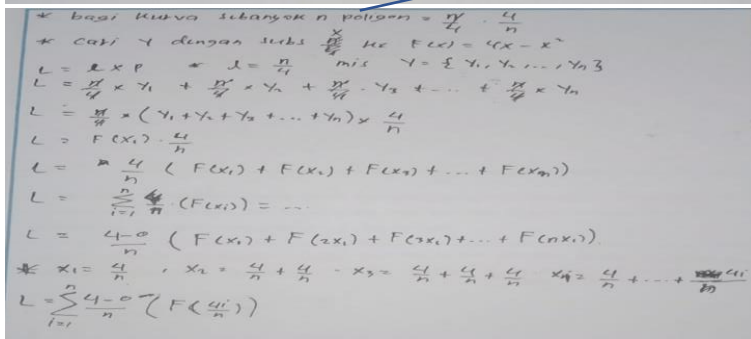 * bagi kurva sebanyak n poligon = n/4 · 4/n
* cari Y dengan subs x ke F(x) = 4x - x²
L = l x p * l = n/4 mis Y = {Y₁, Y₂, ..., Yn}
L = n/4 x Y₁ + n/4 x Y₂ + n/4 · Y₃ + ... + n/4 x Yn
L = n/4 x (Y₁ + Y₂ + Y₃ + ... + Yn) x 4/n
L = F(x₁) · 4/n
L = 4/n (F(x₁) + F(x₂) + F(x₃) + ... + F(xn))
L = Σ_{i=1}^{n} 4/n · (F(xi)) = ...
L = 4-0/n (F(x₁) + F(2x₁) + F(3x₁) + ... + F(nx₁))
* x₁ = 4/n , x₂ = 4/n + 4/n · x₃ = 4/n + 4/n + 4/n xi = 4/n + ... + 4i/n
L = Σ_{i=1}^{n} 4-0/n (F(4i/n))